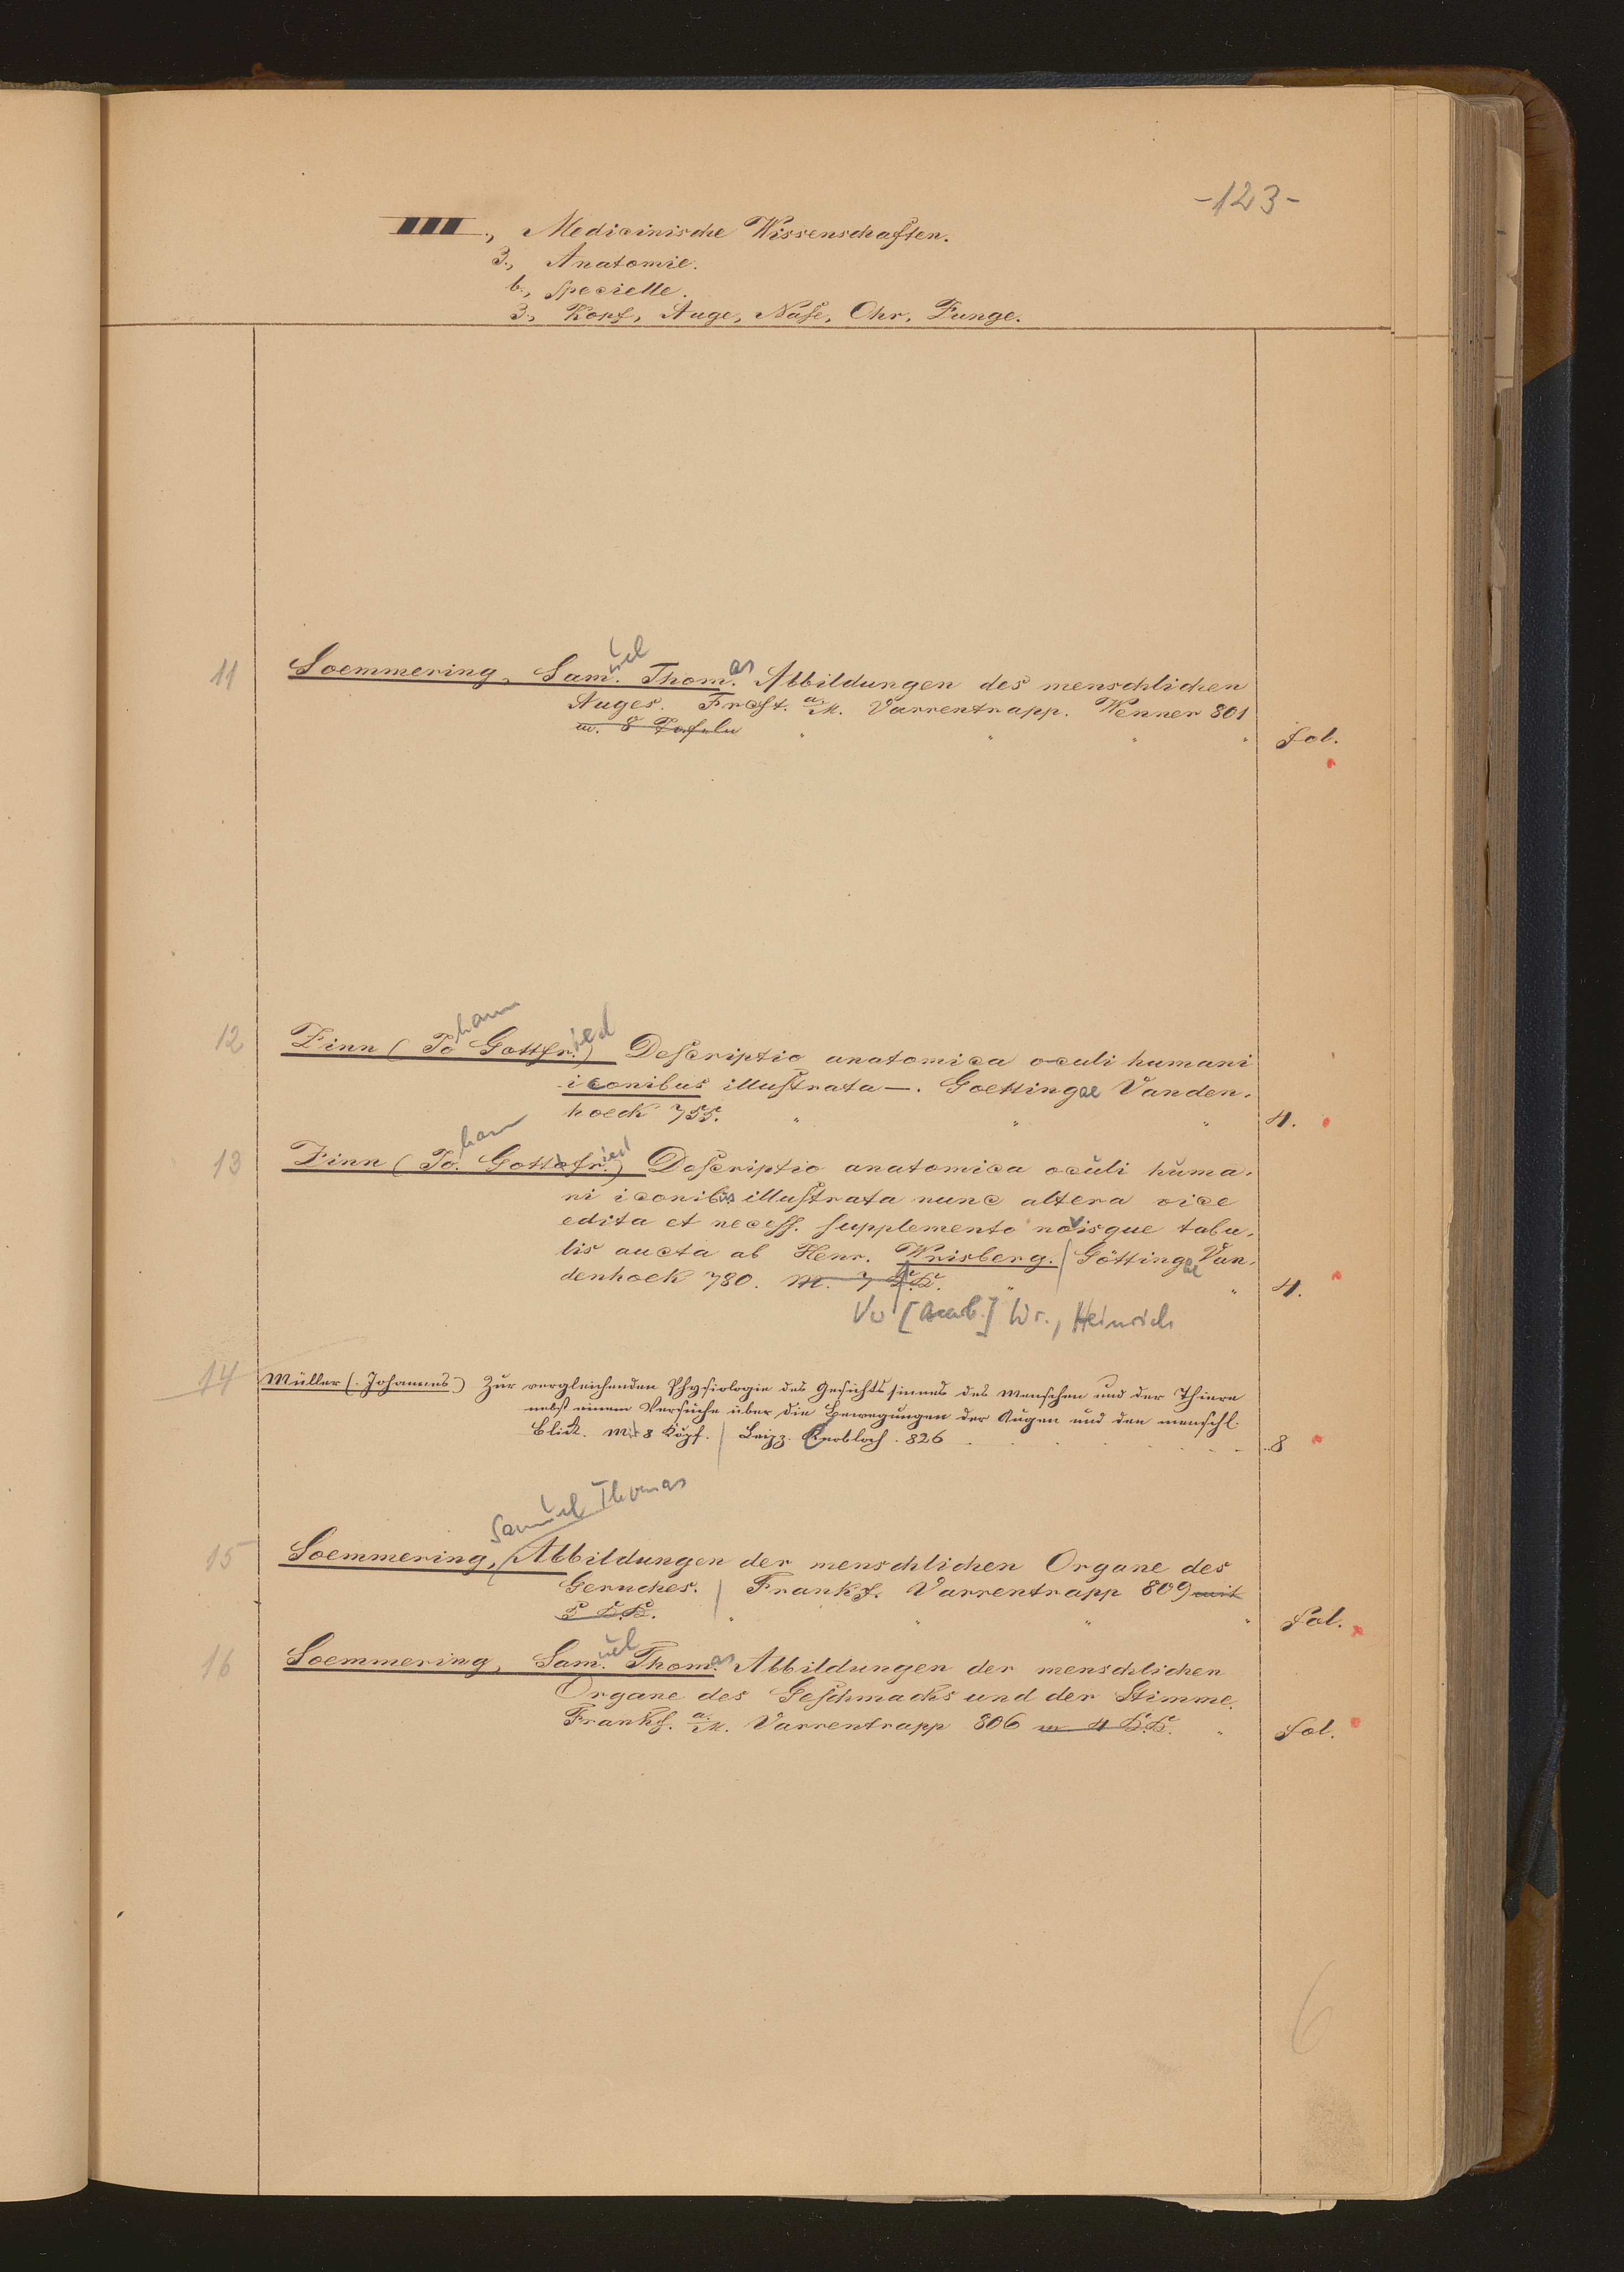 -123-
III., Medicinische Wissenschaften.
3., Anatomie.
b., specielle.
3., Kopf, Auge, Nase, Ohr, Zunge.
11 Soemmering, Samuel Thomas Abbildungen des menschlichen
Auges. Frcft. a. M. Varrentrapp. Wenner 801
m. 8 Tafeln " " " " fol.
12 Zinn (Johann Gottfried) Descriptio anatomica oculi humani
iconibus illustrata —. Goettingae Vanden-
hoeck 755. " " " 4.
13 Zinn (Johann Gottfried) Descriptio anatomica oculi huma-
ni iconibus illustrata nunc altera vice
edita et necess. supplemento novisque tabu-
lis aucta ab Henr. Wrisberg. / Göttingae Van-
denhoek 780. m. 7 K.K. " " 4.
Vw [Bearb.] Wr., Heinrich
14 Müller (Johannes) Zur vergleichenden Physiologie des Gesichtssinnes des Menschen und der Thiere
nebst einem Versuche über die Bewegungen der Augen und den menschl.
Blick. Mit 8 Kupf. / Leipz. Cnobloch. 826 8
Samuel Thomas
15 Soemmering, / Abbildungen der menschlichen Organe des
Geruches. / Frankf. Varrentrapp 809 mit
5 K.K. " " " " fol.
16 Soemmering, Samuel Thomas Abbildungen der menschlichen
Organe des Geschmacks und der Stimme.
Frankf. a. M. Varrentrapp 806 m 4 K.K. " fol.
6